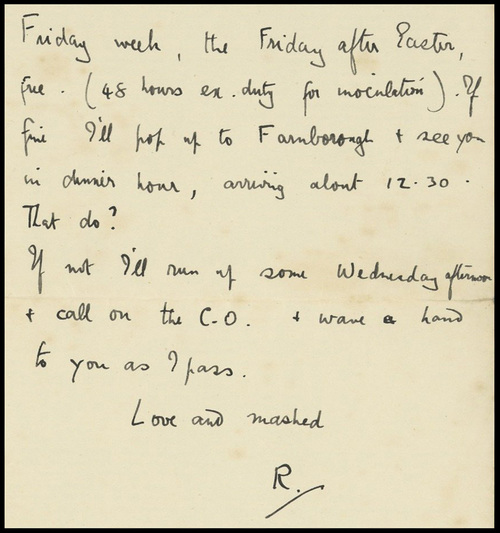 Friday week, the Friday after Easter,
free. (48 hours ex. duty for inoculation). If
fine I'll pop up to Farnborough + see you
in dinner hour, arriving about 12.30.
That do?
If not I'll run up some Wednesday afternoon
+ call on the C-O. + wave a hand
to you as I pass.
Love and mashed
R.